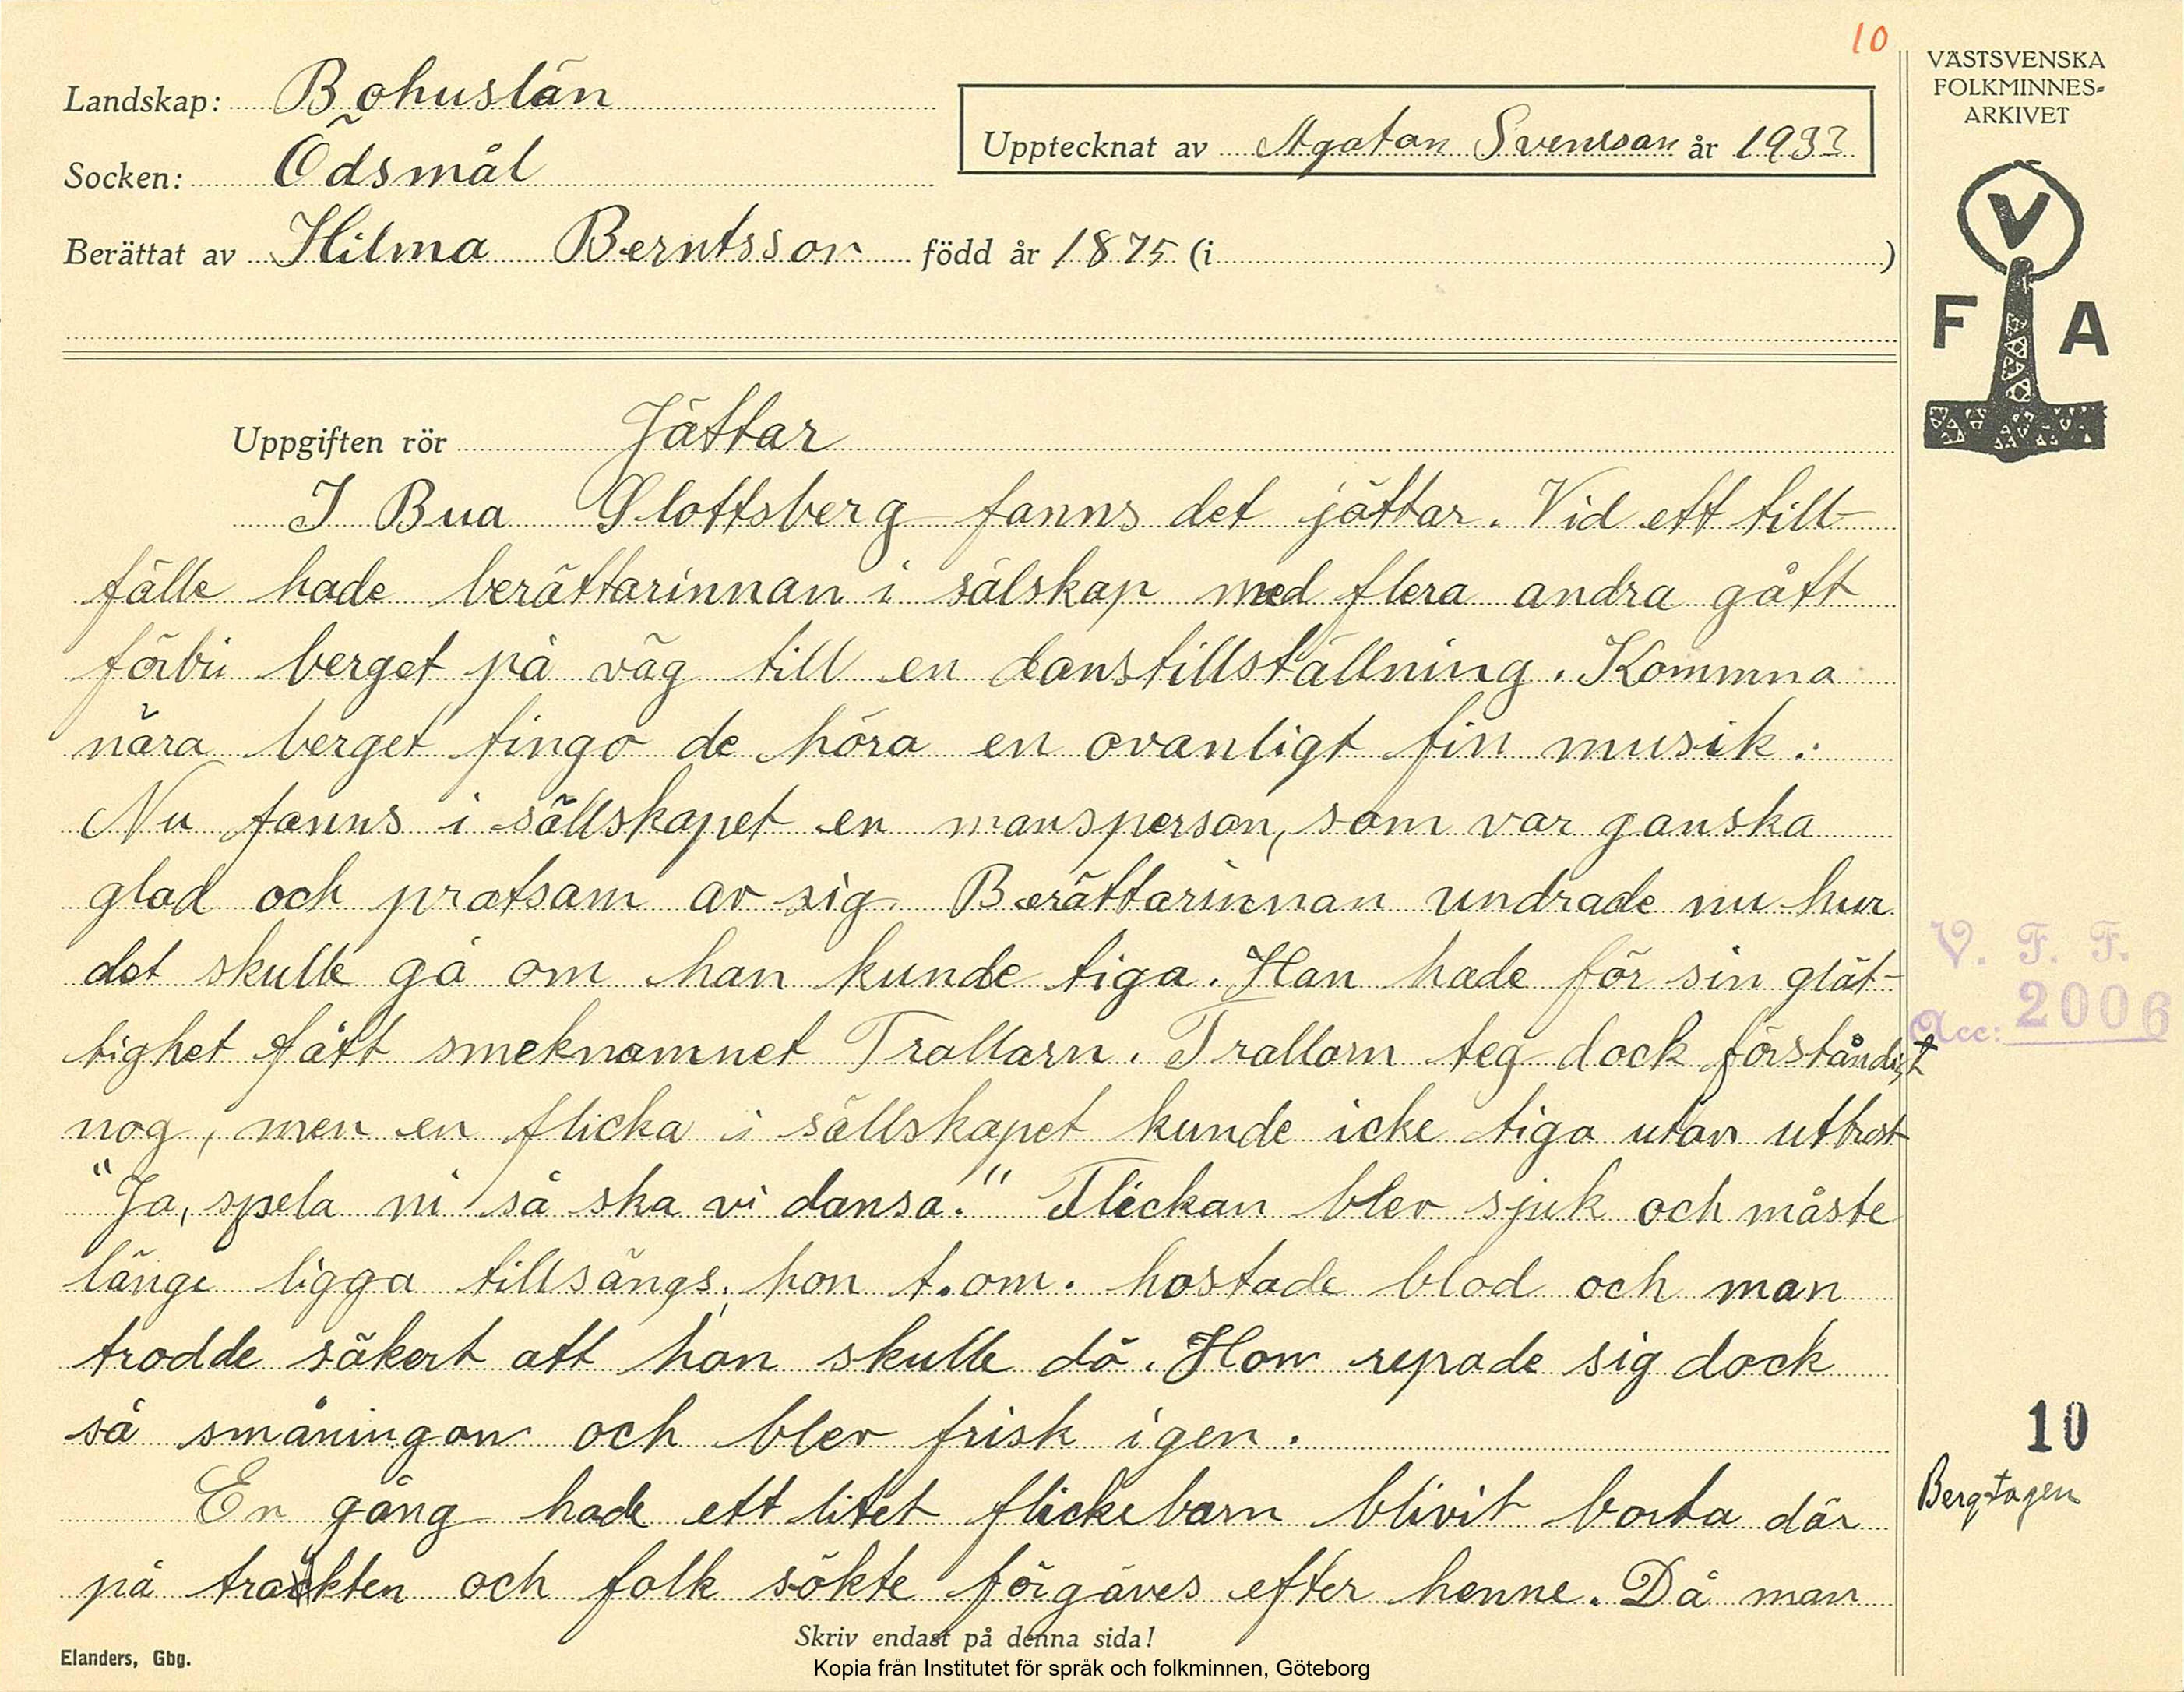 10
VÄSTSVENSKA
FOLKMINNES-
ARKIVET
Landskap: Bohuslän
Upptecknat av Agatan Svensson år 1933
Socken: Ödsmål
Berättat av Hilma Berntsson född år 1875 (i )
V
F A
Uppgiften rör Jättar
I Bua Slottsberg fanns det jättar. Vid ett till-
fälle hade berättarinnan i sälskap med flera andra gått
förbi berget på väg till en danstillställning. Kommna
nära berget fingo de höra en ovanligt fin musik.
Nu fanns i sällskapet en mansperson, som var ganska
glad och pratsam av sig. Berättarinnan undrade nu hur
det skulle gå om han kunde tiga. Han hade för sin glät-
tighet fått smeknamnet Trallarn. Trallarn teg dock förståndigt
nog, men en flicka i sällskapet kunde icke tiga utan utbrast
"Ja, spela ni så ska vi dansa." Flickan blev sjuk och måste
länge ligga tillsängs; hon t.om. hostade blod och man
trodde säkert att hon skulle dö. Hon repade sig dock
så småningom och blev frisk igen.
En gång hade ett litet flickebarn blivit borta där
på trakten och folk sökte förgäves efter henne. Då man
V. F. F.
Acc: 2006
10
Bergtagen
Skriv endast på denna sida!
Elanders, Gbg.
Kopia från Institutet för språk och folkminnen, Göteborg